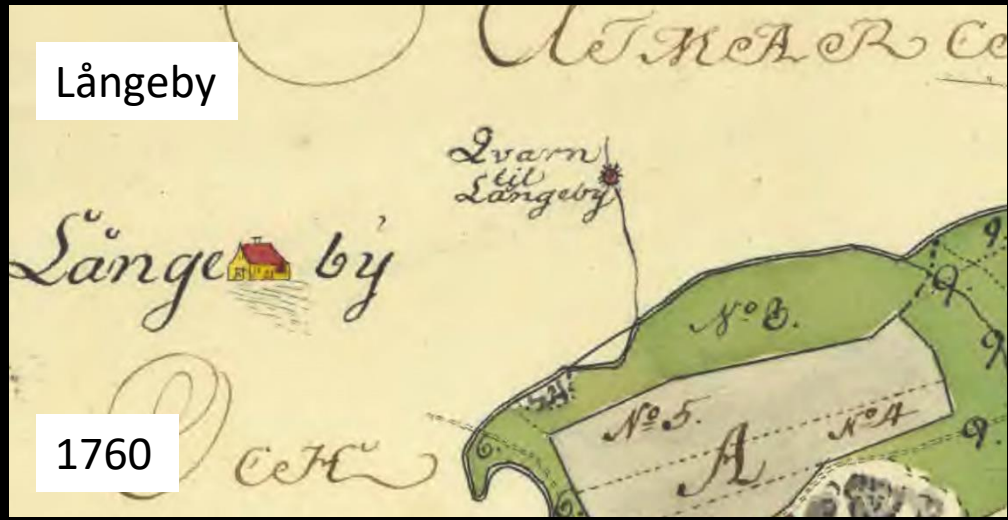 Långeby
UTMARCE
Qvarn
til
Långeby
Långe by
9.
9.
9
No 8.
No 5.
No 4
9
A
OCH
1760